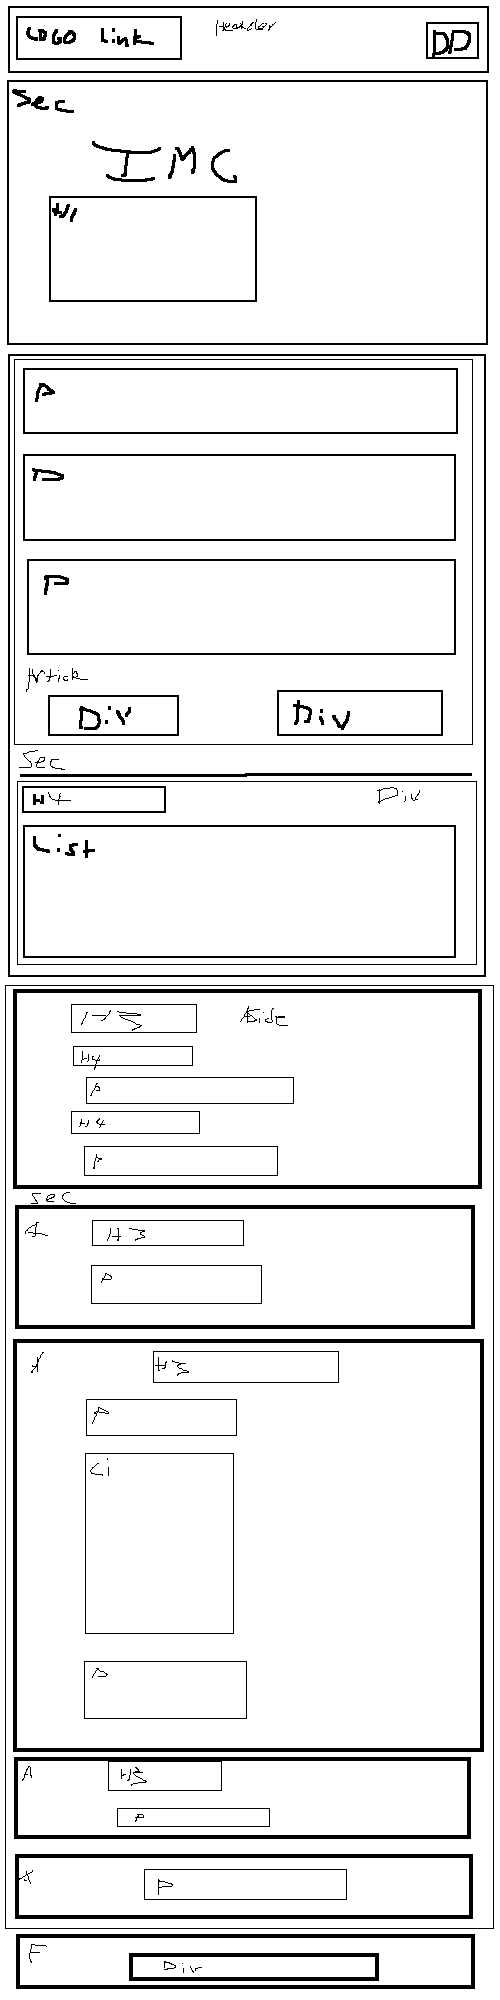 LOGO Link Header DD
Sec
IMG
H1
P
P
P
Artick
Div Div
Sec
H4 Div
List
H3 Aside
H4
P
H4
P
sec
A H3
P
A H3
P
Li
P
A H3
P
A P
F Div